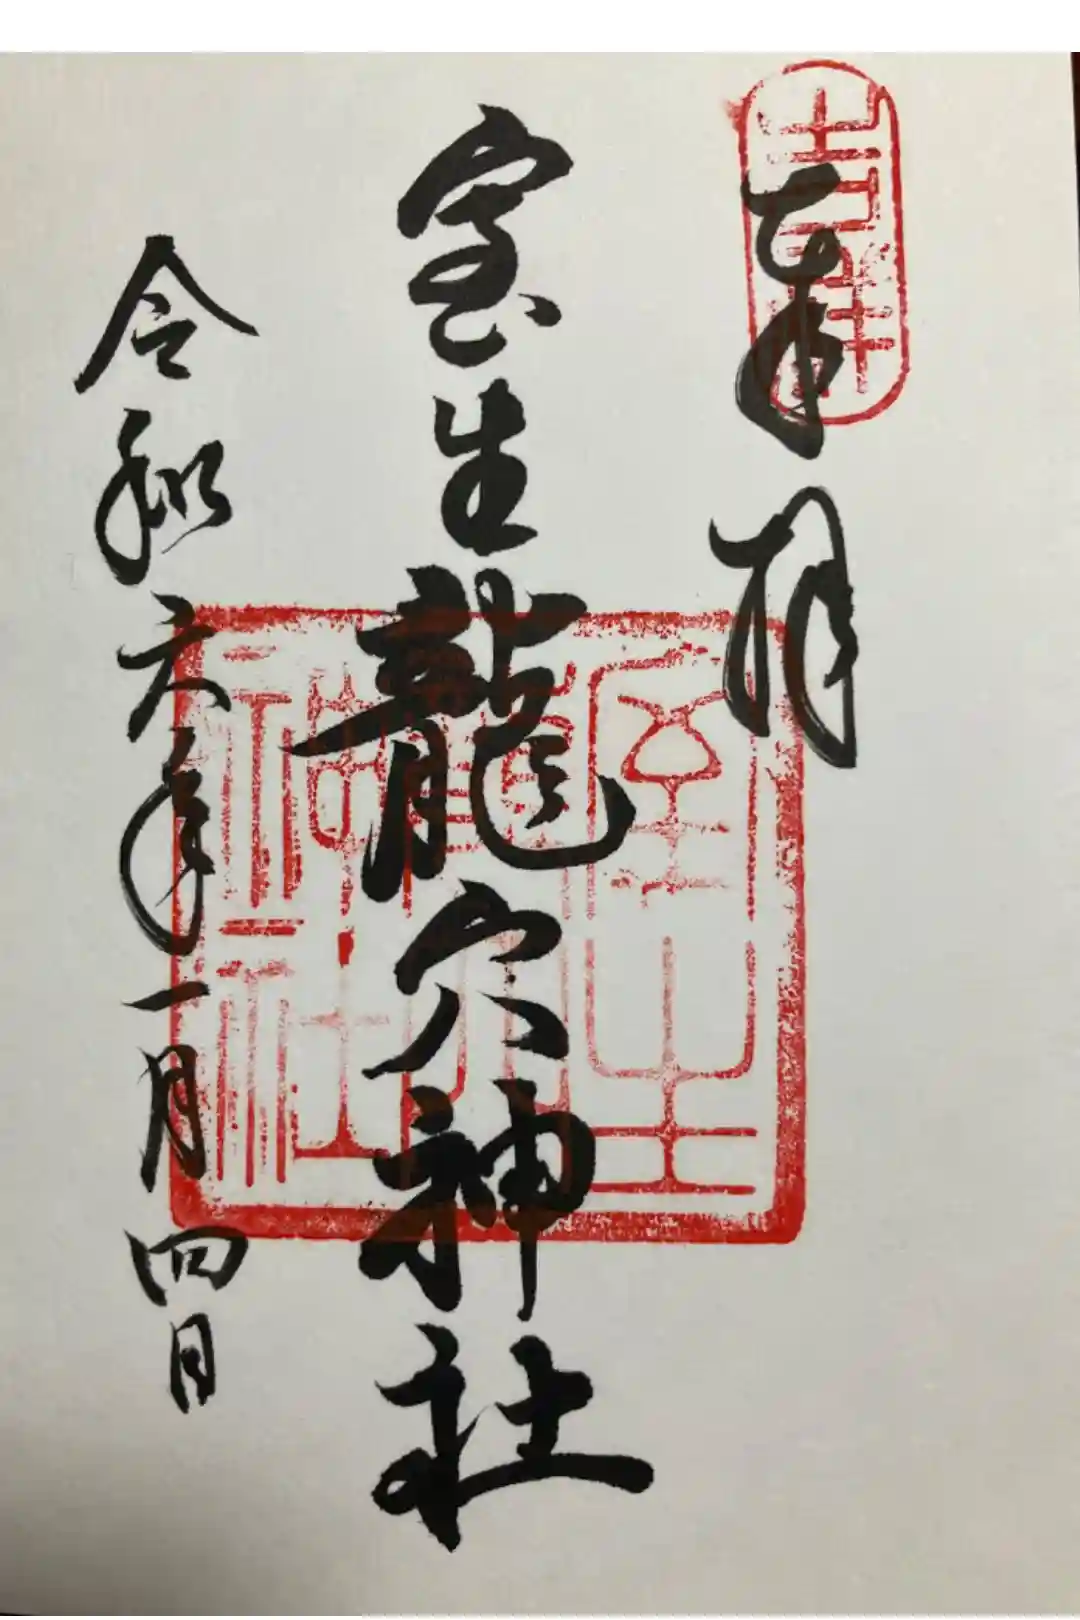 奉拝
吉祥
室生龍穴神社
室生龍穴神社
令和六年一月四日